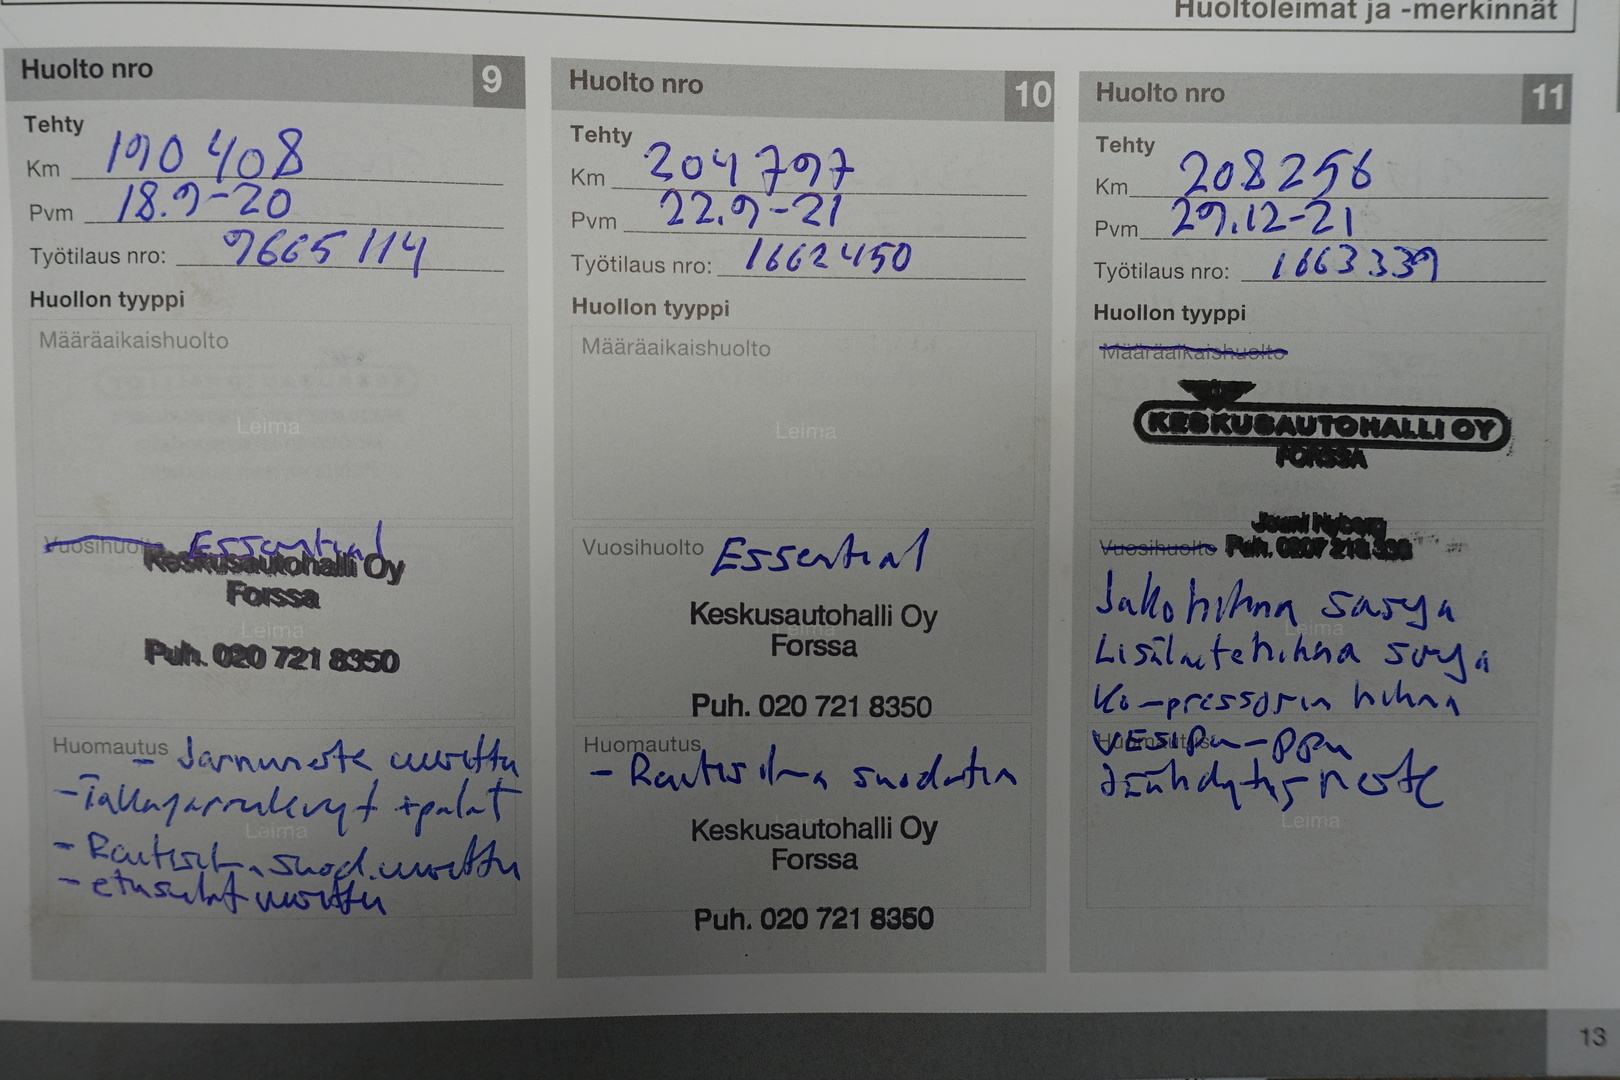 Huoltoleimat ja -merkinnät
Huolto nro 9
Tehty
Km 190 408
Pvm 18.9-20
Työtilaus nro: 9665114
Huollon tyyppi
Määräaikaishuolto
Leima
Vuosihuolto Essential
Keskusautohalli Oy
Forssa
Leima
Puh. 020 721 8350
Huomautus - Jarruneste uusittu
- Takajarrulevyt + palat
Leima
- Raitisilma suod. uusittu
- etusulat uusittu
Huolto nro 10
Tehty
Km 204 797
Pvm 22.9-21
Työtilaus nro: 1662450
Huollon tyyppi
Määräaikaishuolto
Leima
Vuosihuolto Essential
Keskusautohalli Oy
Forssa
Leima
Puh. 020 721 8350
Huomautus
- Raitisilma suodatin
Keskusautohalli Oy
Forssa
Puh. 020 721 8350
Huolto nro 11
Tehty
Km 208256
Pvm 29.12-21
Työtilaus nro: 1663339
Huollon tyyppi
Määräaikaishuolto
KESKUSAUTOHALLI OY
FORSSA
Jouni Nyberg
Vuosihuolto Puh. 0207 218
Jakohihna sarja
Leima
Lisälaitehihna sarja
Kompressorin hihna
Huomautus
Vesipumppu
Jäähdytysneste
Leima
13